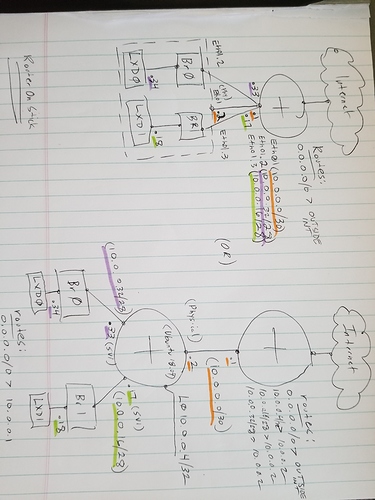 Internet
Routes:
0.0.0.0/0 > OUTSIDE INT
Eth0/1 (10.0.0.0/30)
Eth0/1.2 (10.0.0.32/28)
Eth0/1.3 (10.0.0.16/28)
.33
.1
.17
.2
Eth0/1.2
Eth0/1.3
Br0
Br1
.34
.18
LXD0
LXD1
Router On Stick
(OR)
Internet
routes:
0.0.0.0/0 > outside
10.0.0.4/32 > 10.0.0.2
10.0.0.16/28 > 10.0.0.2
10.0.0.32/28 > 10.0.0.2
.1
(10.0.0.0/30)
(Physical)
.2
Lo 10.0.0.4/32
.33 (SVI)
(SVI)
(10.0.0.32/28)
(10.0.0.16/28)
Br0
Br1
.34
.18
LXD0
LXD1
routes:
0.0.0.0/0 > 10.0.0.1